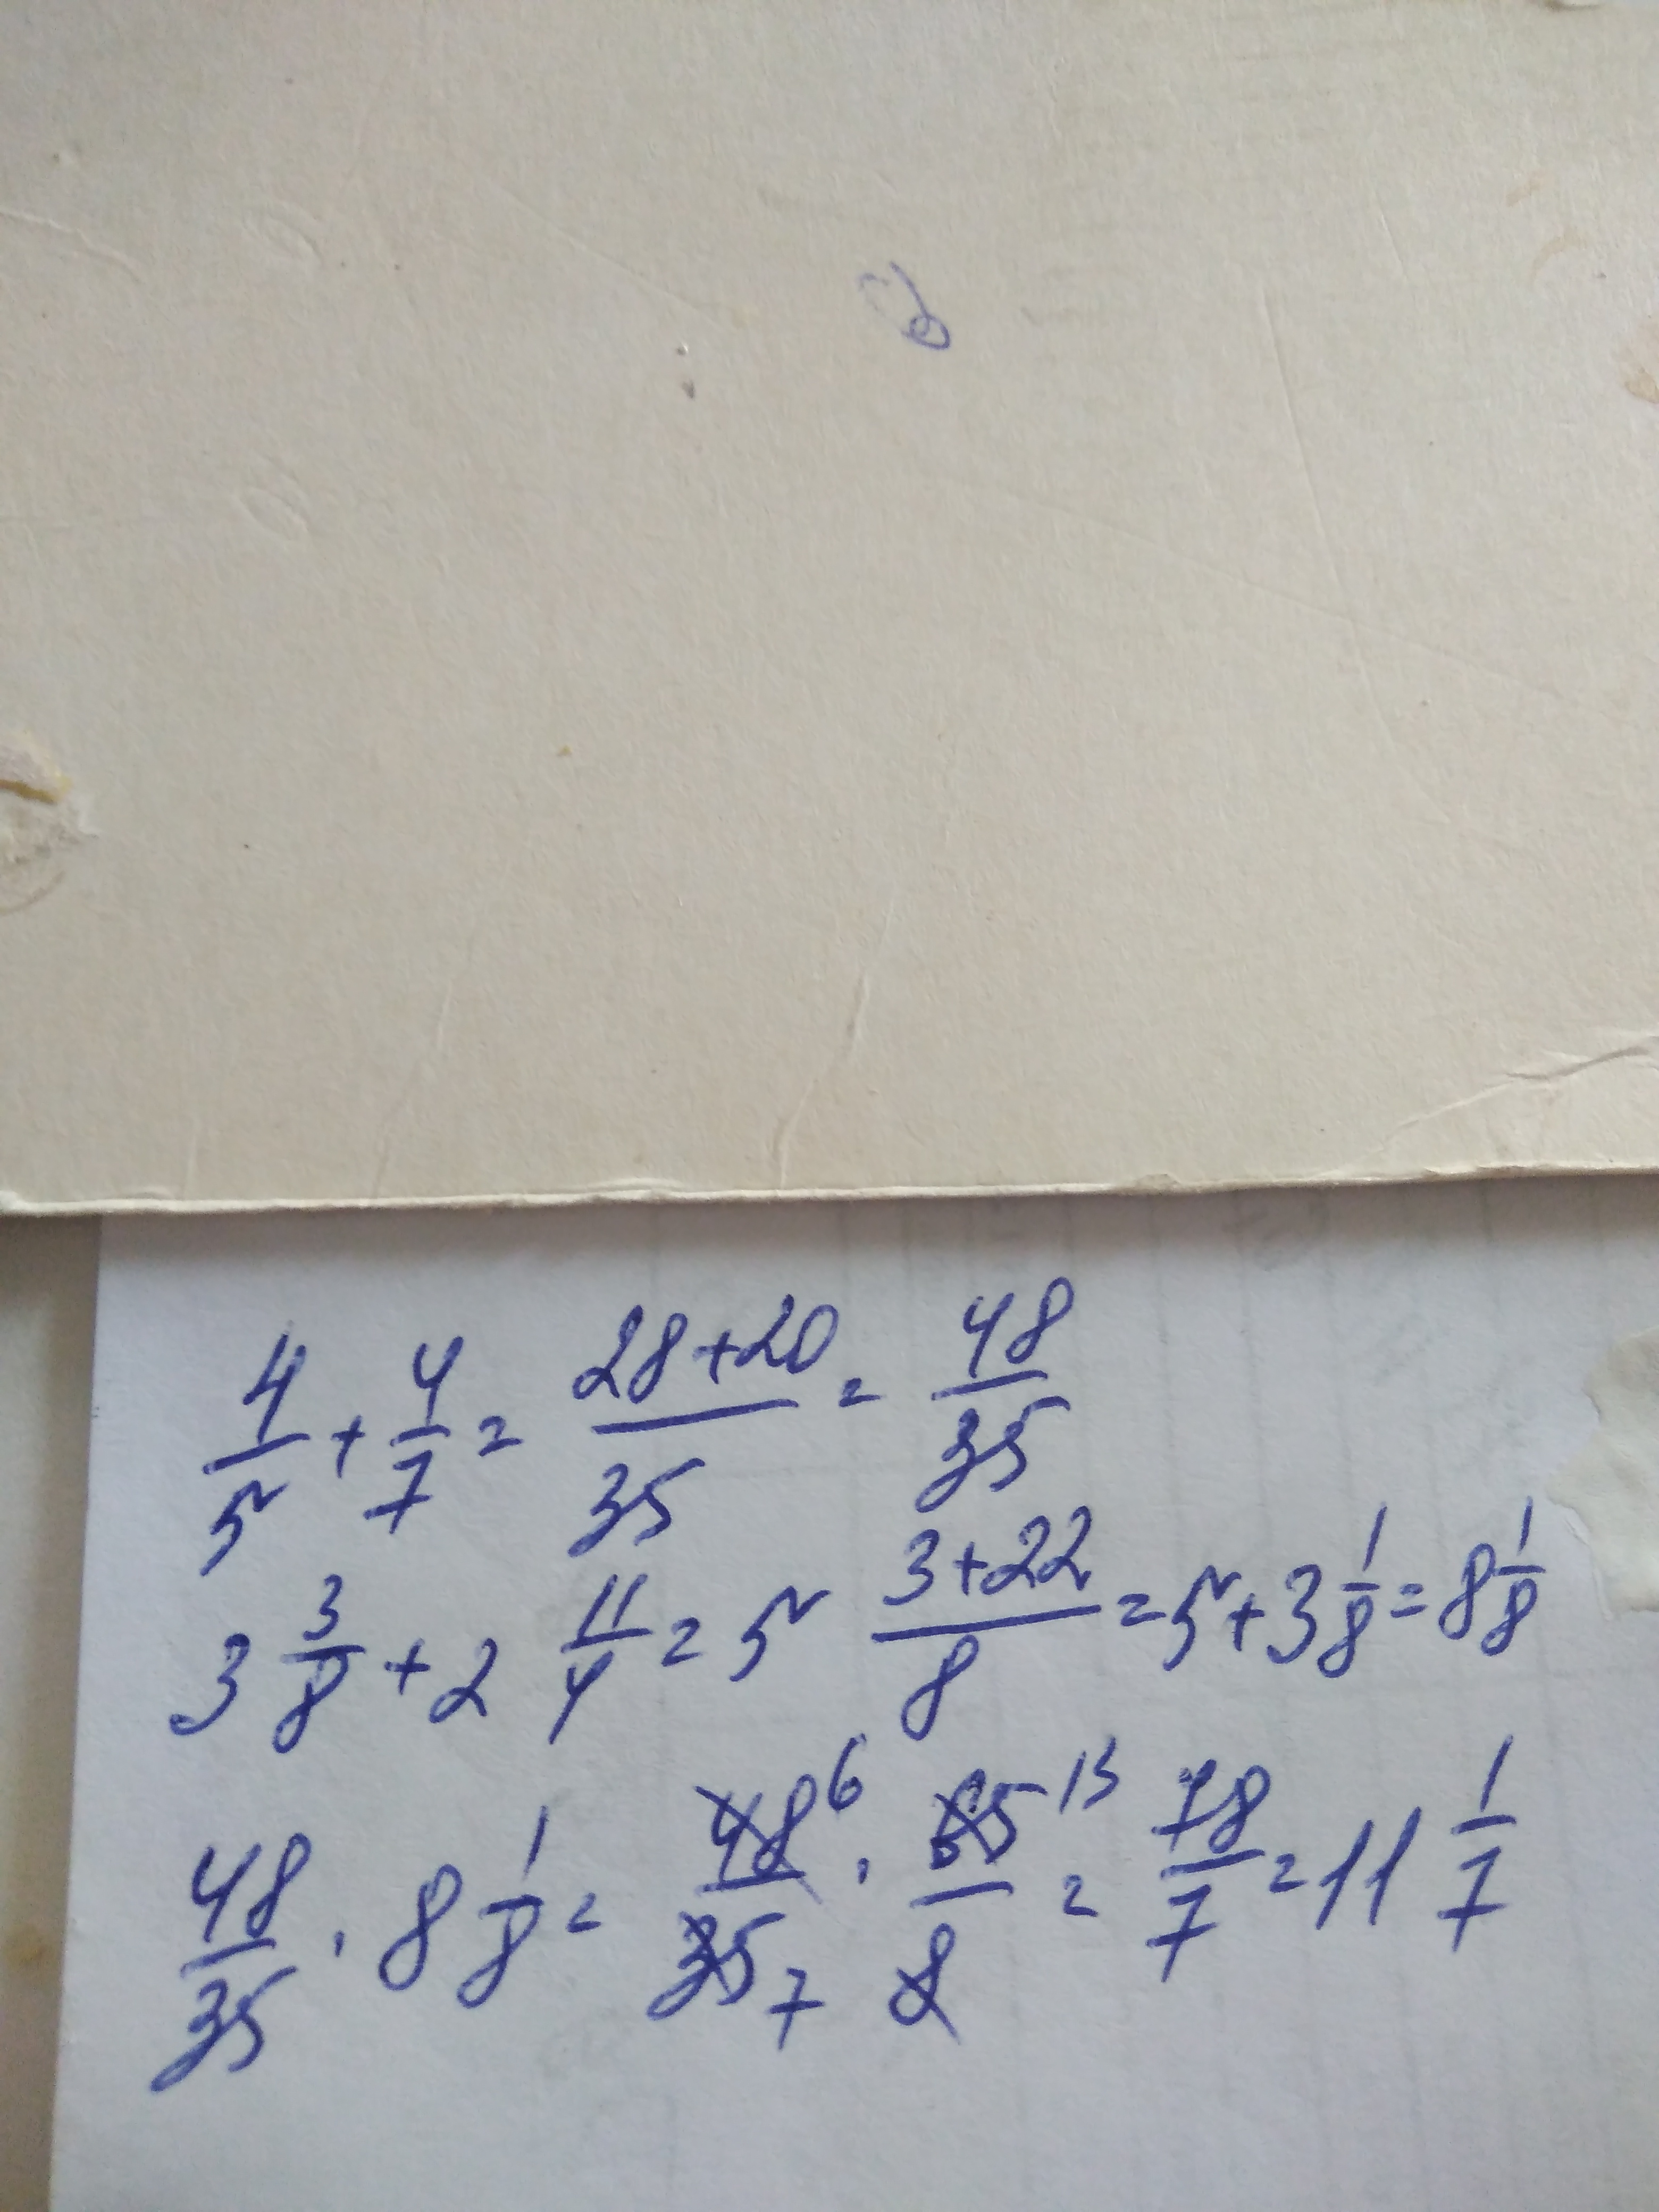 4/5 + 4/7 = (28+20)/35 = 48/35
3 3/8 + 2 11/4 = 5 (3+22)/8 = 5 + 3 1/8 = 8 1/8
48/35 · 8 1/8 = 48 6/35 7 · 65 13/8 = 78/7 = 11 1/7